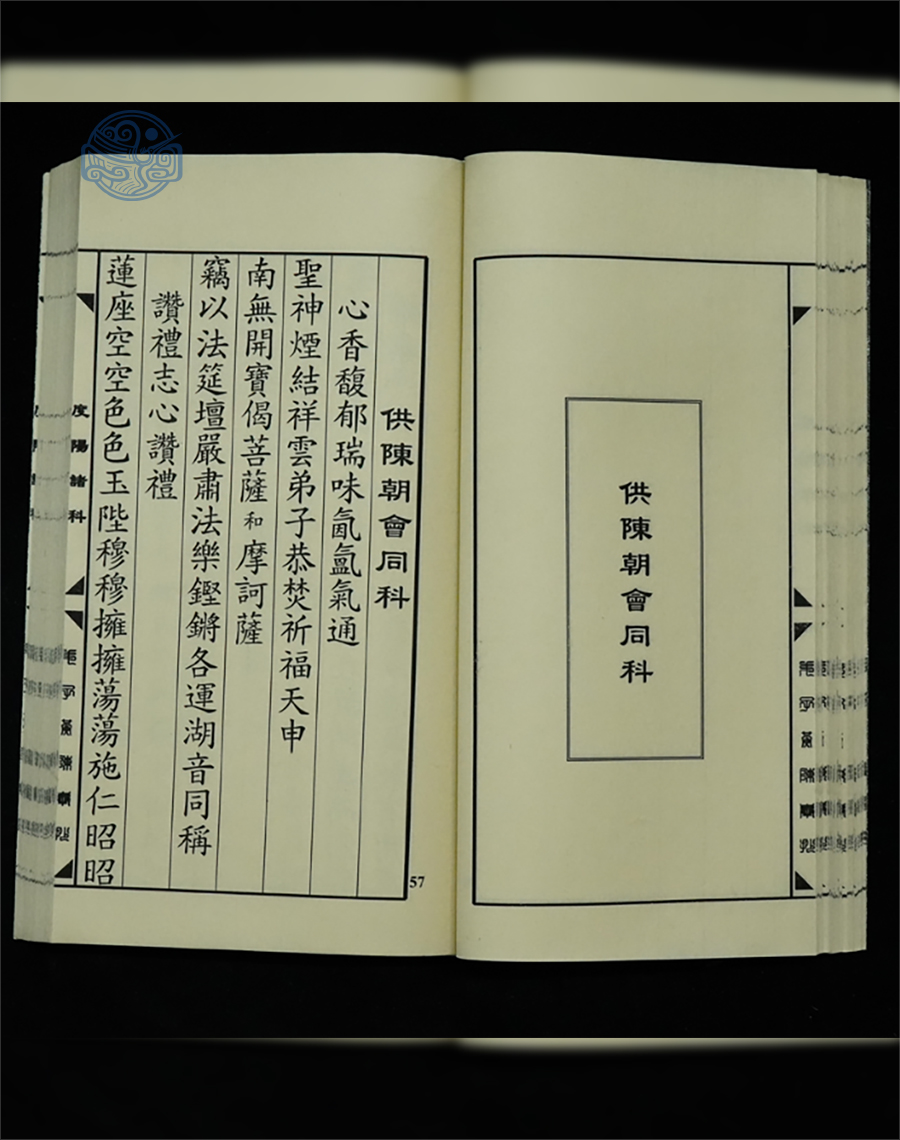 供陳朝會同科
供陳朝會同科
心香馥郁瑞味氤氳氣通
聖神煙結祥雲弟子恭焚祈福天申
南無開寶偈菩薩和摩訶薩
竊以法筵壇嚴肅法樂鏗鏘各運湖音同稱
讚禮志心讚禮
蓮座空空色色玉陛穆穆擁擁蕩蕩施仁昭昭
57
度陽諸科